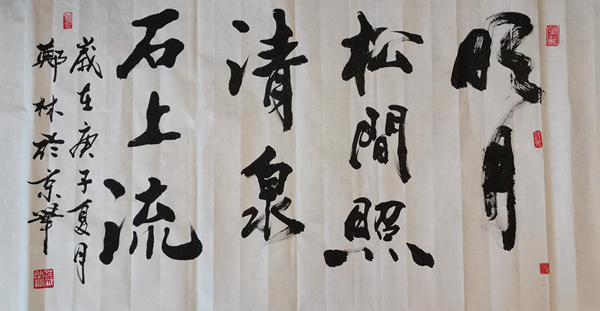 明月
松間照
清泉
石上流
歲在庚子夏月
鄭林於京華